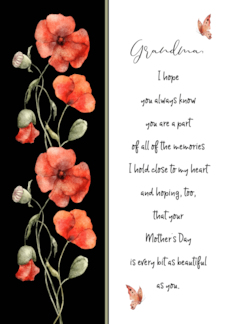 Grandma,
I hope
you always know
you are a part
of all of the memories
I hold close to my heart
and hoping, too,
that your
Mother's Day
is every bit as beautiful
as you.